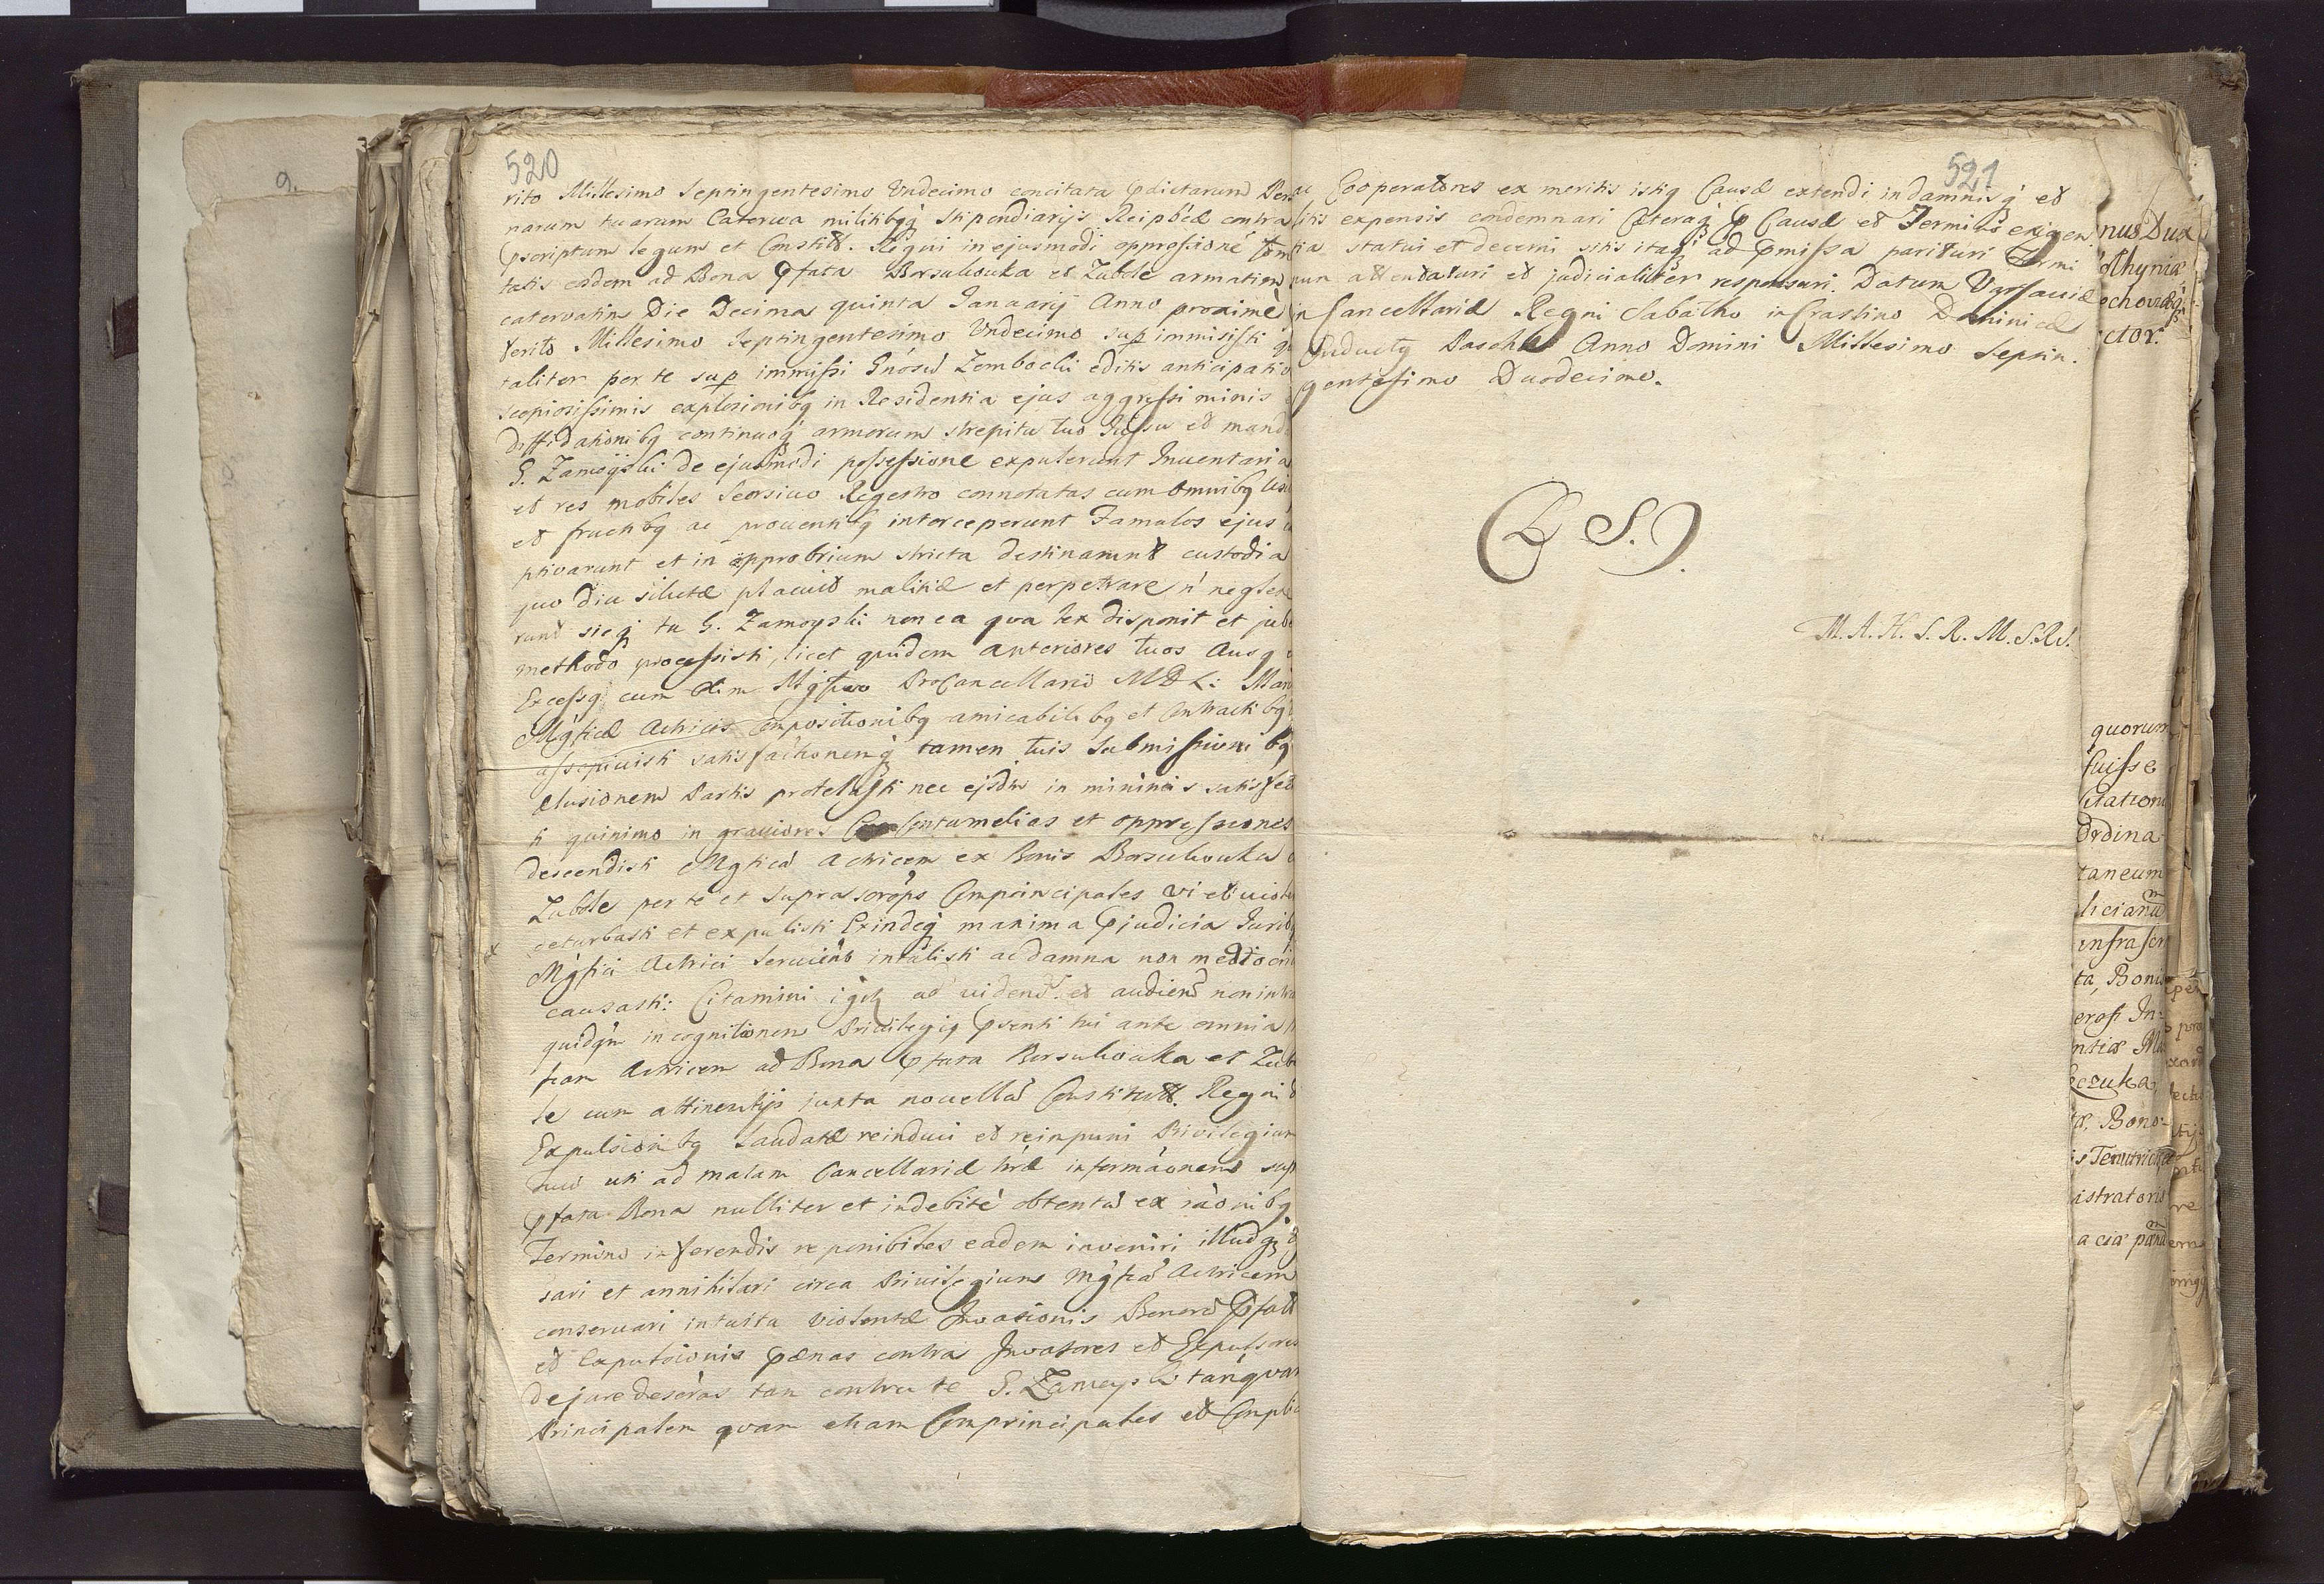 520
rito Millesimo Septingentesimo Undecimo concitata pdictarum Per
narum tuarum Caterva militibqq stipendiarijs Reipbcæ contra
pscriptum legum et Constitt. Regni in ejusmodi oppressione
tatis eadem ad Bona pfata Borsukowka et Zubole armatim
catervatim Die Decima quinta Januarij Anno proximè
terito Millesimo Septingentesimo Undecimo sup immisisti
taliter per te sup immissi Gnosū Zembocki editis anticipatio
scopiosissimis explosionibq in Residentia ejus aggressi minis
diffidationibq continuoq armorum strepitu tuo Jussu et mand
G. Zamoyski de ejusmodi possessione expulerunt Inuentaria
et res mobiles Seorsiuo Regestro connotatas cum omnibq
et fructibq ac prouentibq interceperunt Famulos ejus
ptivarunt et in opprobrium stricta destinarunt custodia
quo diu libitæ placuit malitiæ et perpetrare n neglexe
runt sicq tu G. Zamoyski non ea qva lex disponit et jube
methodo processisti, licet quidem anteriores tuos Ausq
Excessq cum olim Mgfico ProCancellario MDL: Mari
Mgficæ Actricis Compositionibq amicabilibq et Contractibq
assopiuisti satisfactionemq tamen tuis Submissionibq
elusionem Partis protelasti nec ejsdm in minimis satisfec
ti quinimo in grauiores Contumelias et oppressiones
descendisti Mgficā Actricem ex Bonis Borsukowka
Zubole per te et suprascrops Comprincipales vi et uiole
eturbasti et expulisti Exindeq maxima pjudicia Jurib
Mgfici Actrici Seruienō intulisti ac damna non mediocri
causasti: Citamini igtr ad uidend. et audiend non intra
quidqm in cognitionem Priuilegiq psenti tui ante omnia
fcam Actricem ad Bona pfata Borsukowka et Zubo
le cum attinentijs juxta nouellā Constitutt. Regni
Expulsionibq Laudatæ reinduci et reimponi Priuilegium
tuū uti ad malam Cancellariæ nræ informaonem sup
pfata Bona nulliter et indebitè obtentū ex raonibq
Termino inferendis reponibiles eadem inveniri illudq
sari et annihilari circa Priuilegium Mgficā Actricem
conseruari intuitu violentæ Invasionis Bonorū pfatt
et Expulsionis pænas contra Invasores et Expulsores
de jure descrās tam contra te G. Zamoyski tanqvam
Principalem qvam etiam Comprincipales et Compli
521
ac Cooperatores ex meritis istiq Causæ extendi in damnisq et
litis expensis condemnari Cæteraq p Causæ et Termini exigen
tia statui et decerni sitis itaq ad pmissa parituri Termi
num attentaturi et judicialiter responsuri. Datum Varsauiæ
in Cancellaria Regni Sabatho in Crastino Dominicæ
Conductq Paschæ Anno Domini Millesimo Septin.
gentesimo Duodecimo.
(L S.)
M. A. H. S. R. M. S. Rs.
nus Dux
lhyniæ
echoviæq
ctor.
quorum
fuisse
Citation
Ordina
taneum
licianū
infrascr
ta, Bonis
erosi In:
ntiæ Ma
kczuka
æ, Bono:
is Tenutricis
istratoris
a ciæ pænā